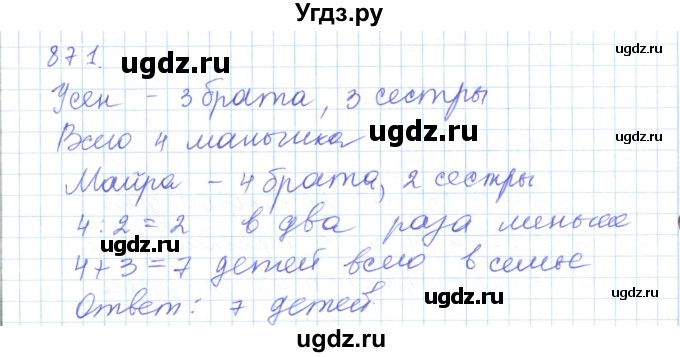 Угдз.ру
871.
ugdz.ru
ugdz.ru
Усен - 3 брата, 3 сестры
ugdz.ru
Всего 4 мальчика
ugdz.ru
Майра - 4 брата, 2 сестры
ugdz.ru
4 : 2 = 2 в два раза меньше
ugdz.ru
ugdz.ru
4 + 3 = 7 детей всего в семье
ugdz.ru
Ответ: 7 детей
ugdz.ru
ugdz.ru